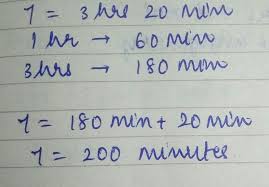 1 = 3 hrs 20 min
1 hr → 60 min
3 hrs → 180 min
1 = 180 min + 20 min
1 = 200 minutes